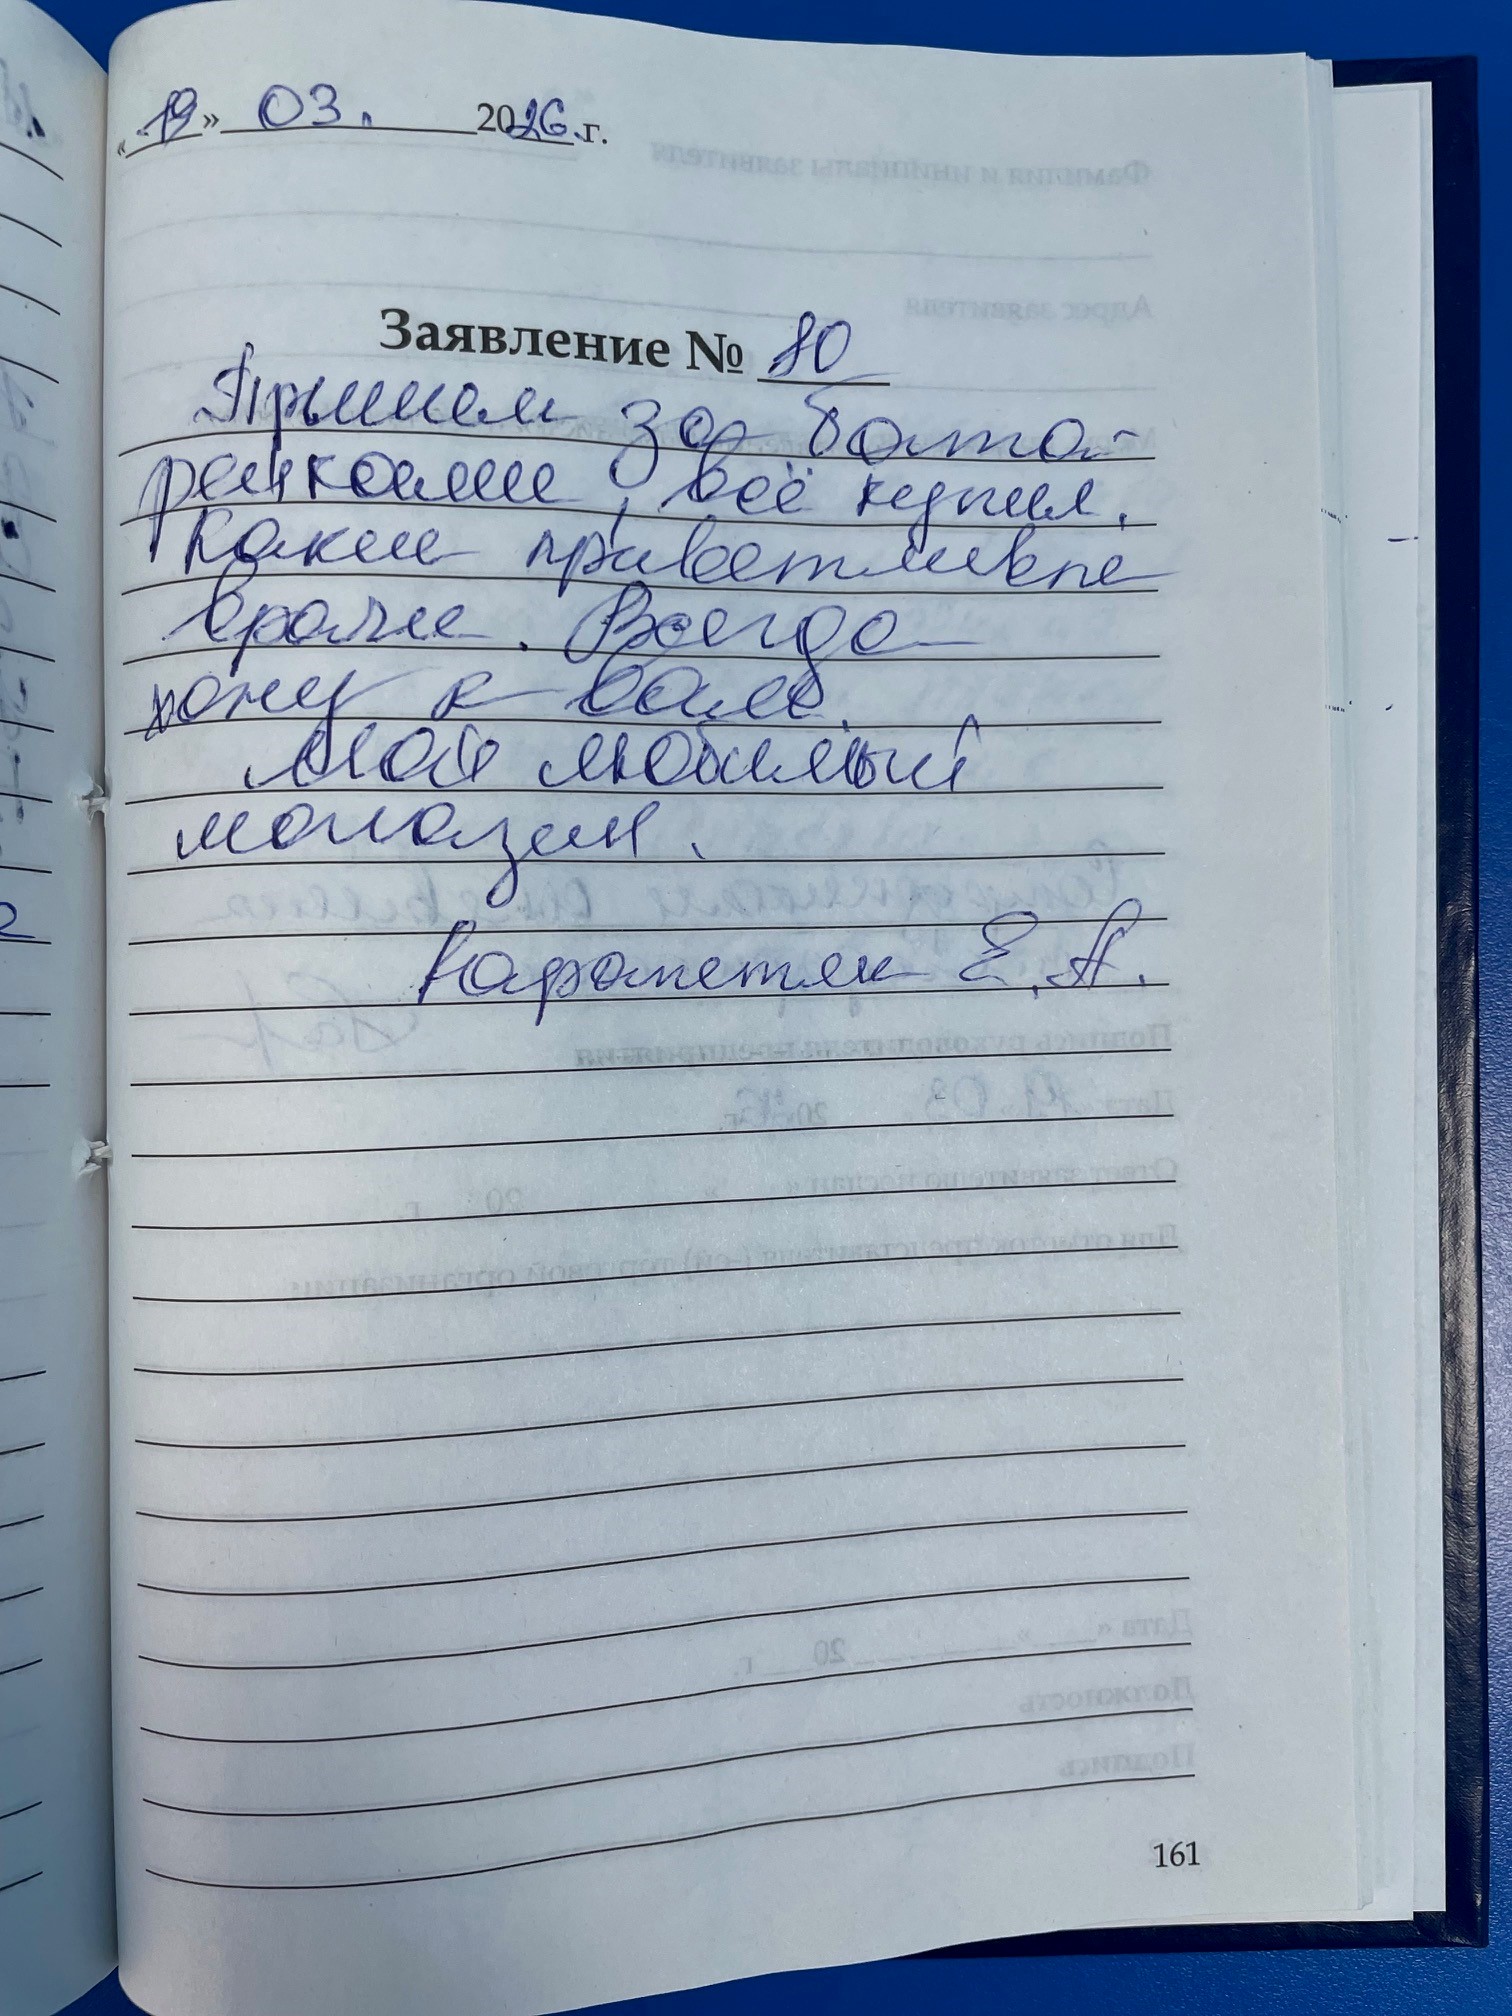 «19» 03. 2026.г.
Заявление № 80
Пришел за бата-
рейками, всё купил.
Какие приветливые
врачи. Всегда
хожу к вам.
Мой любимый
магазин.
Е.А.
161